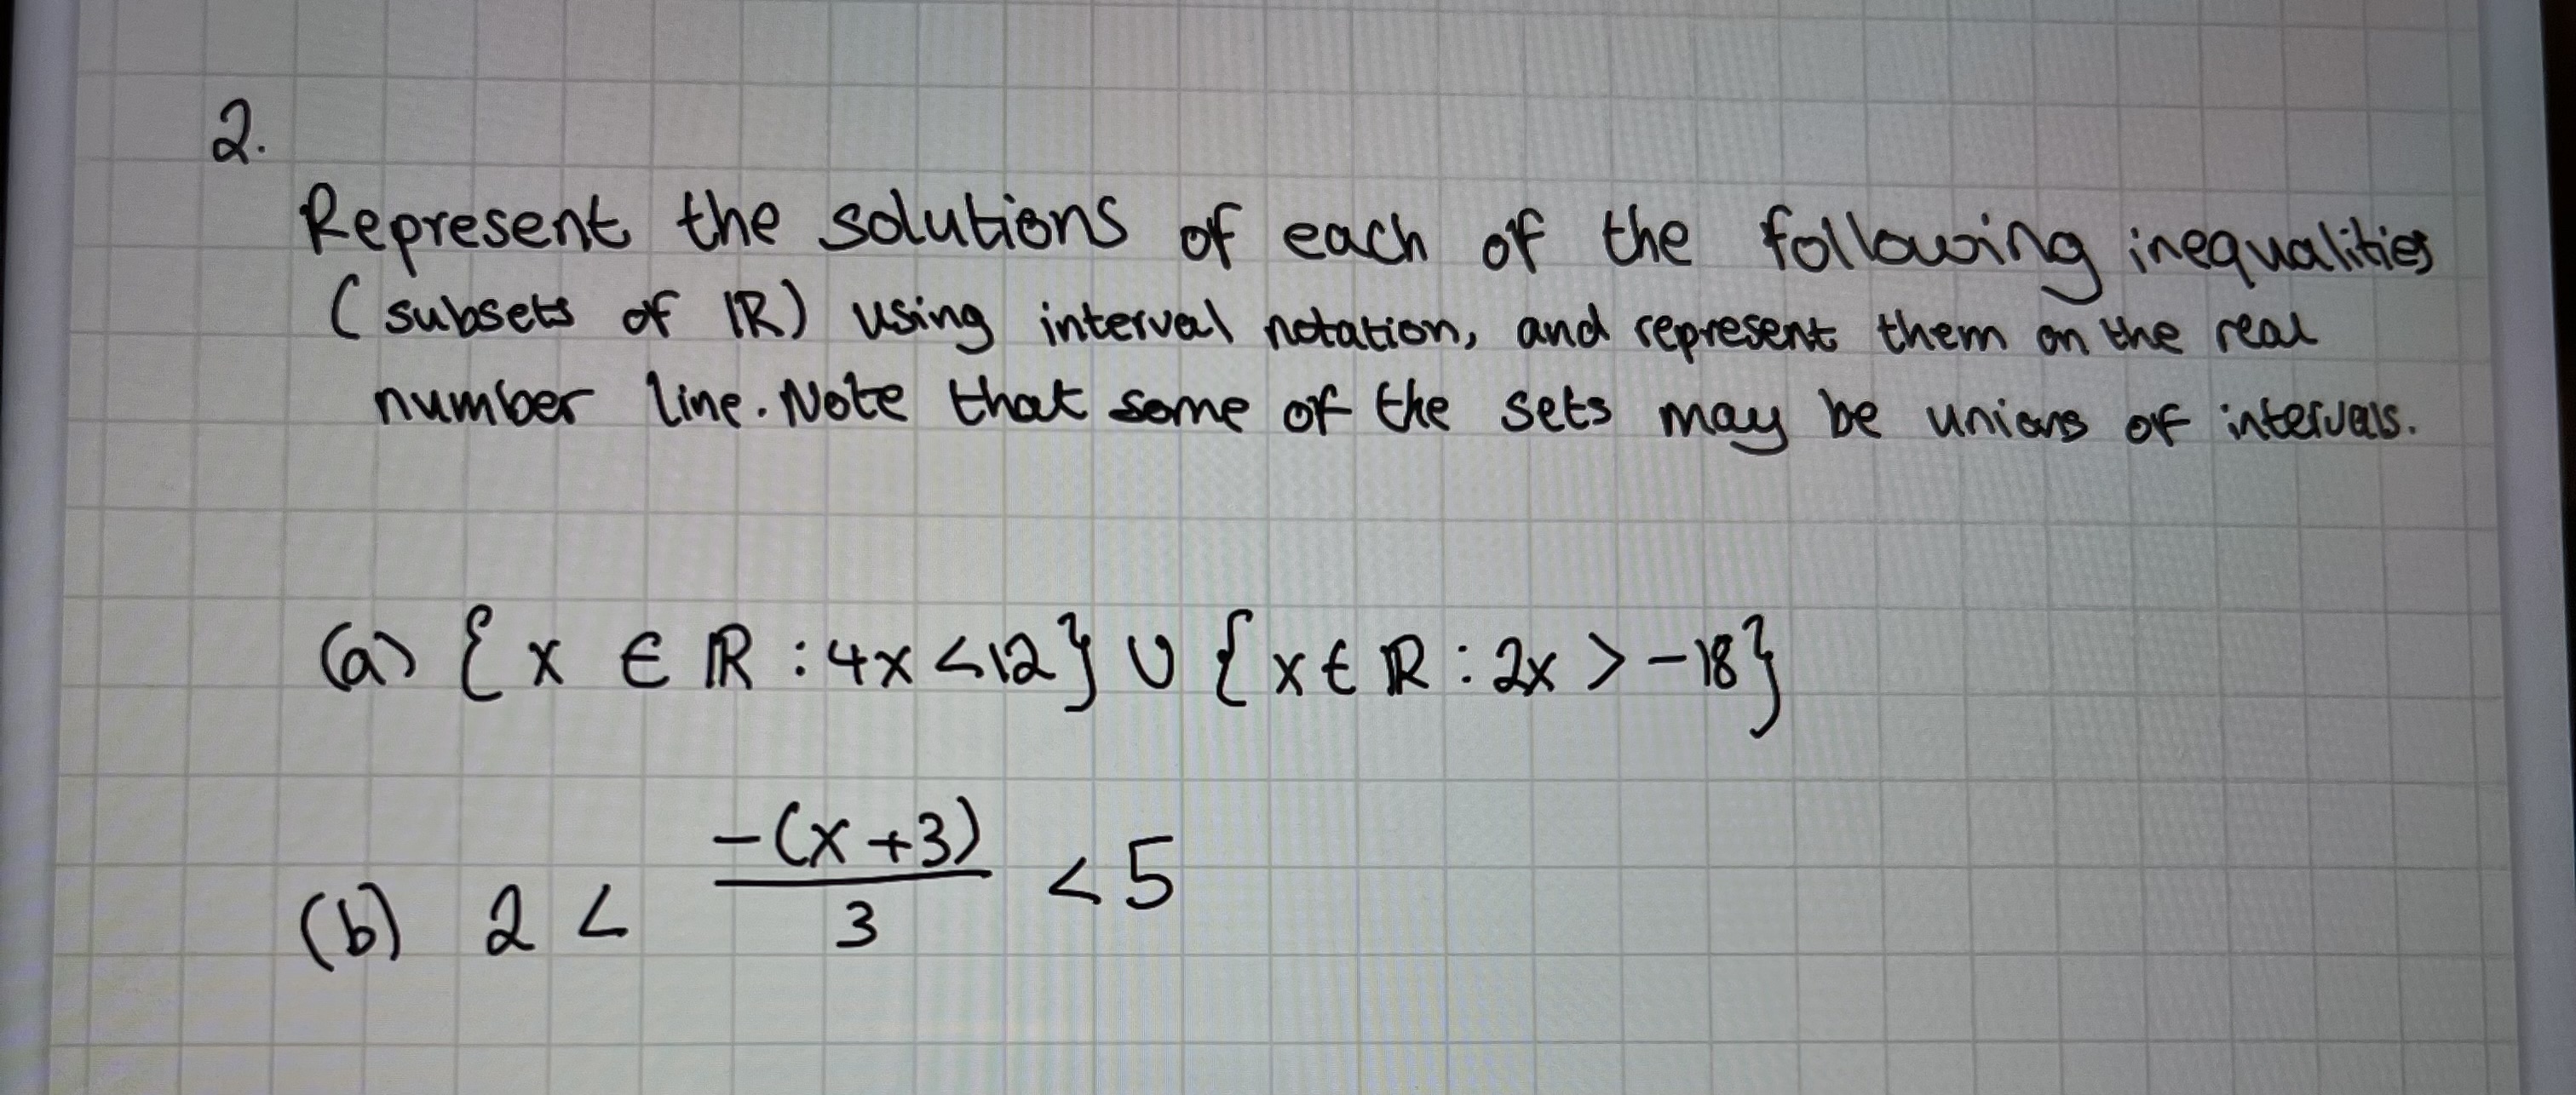 2.
Represent the solutions of each of the following inequalities
(subsets of ℝ) using interval notation, and represent them on the real
number line. Note that some of the sets may be unions of intervals.
(a) {x ∈ ℝ : 4x < 12} ∪ {x ∈ ℝ : 2x > -18}
(b) 2 < -(x+3)/3 < 5